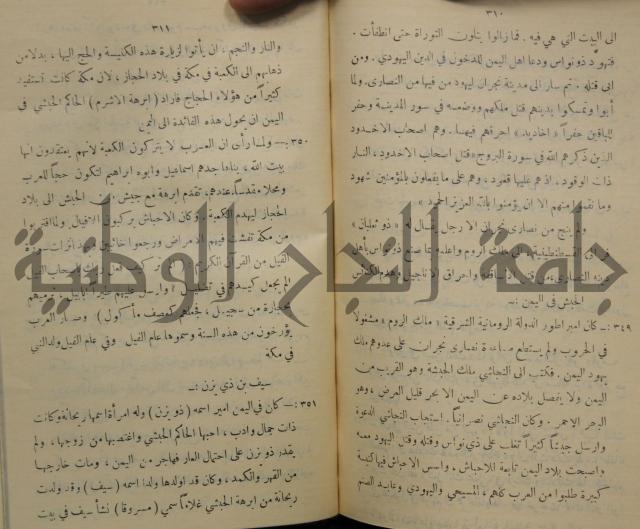 ٣١٠
الى البيت التي هي فيه . فما زالوا يتلون التوراة حتى انطفأت .
فتهود ذو نواس ودعا اهل اليمن للدخول في الدين اليهودي . ومن
ابى قتله . ثم سار الى مدينة نجران ليهود من فيها من النصارى. ولما
أبوا وتمسكوا بدينهم قتل ملكهم ووضعه في سور المدينة وحفر
للباقين حفراً « اخاديد » احرقهم فيها . وهم اصحاب الاخدود
الذين ذكرهم الله في سورة البروج « قتل اصحاب الاخدود ، النار
ذات الوقود . اذ هم عليها قعود ، وهم على ما يفعلون بالمؤمنين شهود
وما نقموا منهم الا ان يؤمنوا بالله العزيز الحميد »
ولم ينج من نصارى نجران الا رجل يقال له « ذو ثعلبان »
الى ملك الروم واعلمه بما صنع ذو نواس بأهل
دينه النصارى من قتل واحراق الاناجيل وهدم الكنائس
الحبش في اليمن :ـ
٣٤٩ :ـ كان امبراطور الدولة الرومانية الشرقية « ملك الروم » مشغولا
في الحروب ولم يستطع مساعدة نصارى نجران على عدوهم ملك
يهود اليمن . فكتب الى النجاشي ملك الحبشة وهو القريب من
اليمن ولا يفصل بلاده عن اليمن الا بحر قليل العرض ، وهو
البحر الاحمر . وكان النجاشي نصرانياً . استجاب النجاشي الدعوة
وارسل جيشاً كثيراً تغلب على ذي نواس وقتله وقتل اليهود معه
واصبحت بلاد اليمن تابعة للاحباش . واسس الاحباش فيها كنيسة
كبيرة طلبوا من العرب كلهم ، المسيحي واليهودي وعابد الصنم
٣١١
والنار والنجم ، ان يأتوا لزيارة هذه الكنيسة والحج اليها ، بدلا من
ذهابهم الى الكعبة في مكة في بلاد الحجاز ، لان مكة كانت تستفيد
كثيراً من هؤلاء الحجاج فأراد ( ابرهة الاشرم ) الحاكم الحبشي في
اليمن ان يحول هذه الفائدة الى اليمن
٣٥٠ :ـ ولما رأى ان العرب لا يتركون الكعبة لانهم يعتقدون انها
بيت الله ، بناها جدهم اسماعيل وابوه ابراهيم لتكون حجاً للعرب
ومحلا مقدساً عندهم، تقدم ابرهة مع جيش من الحبش الى بلاد
الحجاز ليهدم الكعبة . وكان الاحباش يركبون الافيال. ولما اقتربوا
من مكة تفشت فيهم الامراض ورجعوا خائبين
الفيل من القرآن الكريم
الم يجعل كيدهم في تضليل ، وارسل عليهم طيراً ابابيل ترميهم
بحجارة من سجيل ، فجعلهم كعصف مأكول ) وصار العرب
يؤرخون من هذه السنة وسموها عام الفيل وفي عام الفيل ولد النبي
في مكة
سيف بن ذي يزن :ـ
٣٥١ :ـ كان في اليمن امير اسمه ( ذو يزن ) وله امرأة اسمها ريحانة وكانت
ذات جمال وادب ، احبها الحاكم الحبشي واغتصبها من زوجها ، ولم
يقدر ذو يزن على احتمال العار فهاجر من اليمن ، ومات خارجها
من القهر والكمد ، وكان قد اولدها ولدا اسمه ( سيف ) وقد ولدت
ريحانة من ابرهة الحبشي غلاماً سمي ( مسروقا ) نشأ سيف في بيت
جامعة النجاح الوطنية